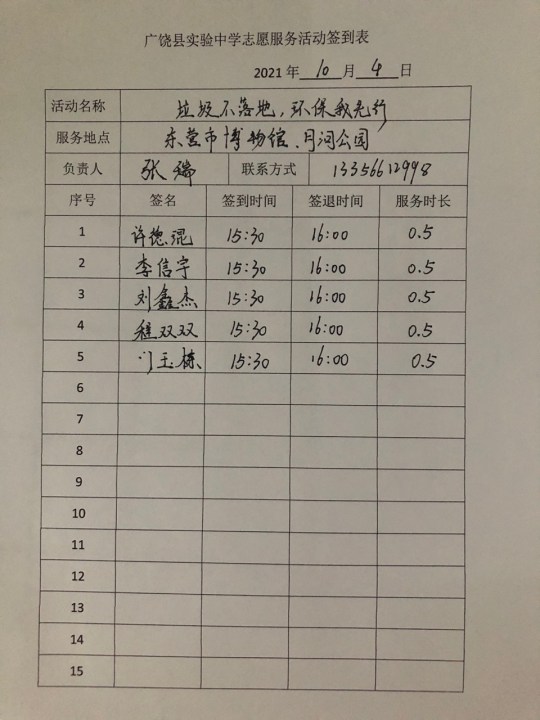 广饶县实验中学志愿服务活动签到表
2021 年 10 月 4 日
活动名称 垃圾不落地，环保我先行
服务地点 东营市博物馆、月河公园
负责人 张瑞 联系方式 13356612998
序号 签名 签到时间 签退时间 服务时长
1 许德琨 15:30 16:00 0.5
2 李信宇 15:30 16:00 0.5
3 刘鑫杰 15:30 16:00 0.5
4 程双双 15:30 16:00 0.5
5 门玉栋 15:30 16:00 0.5
6
7
8
9
10
11
12
13
14
15